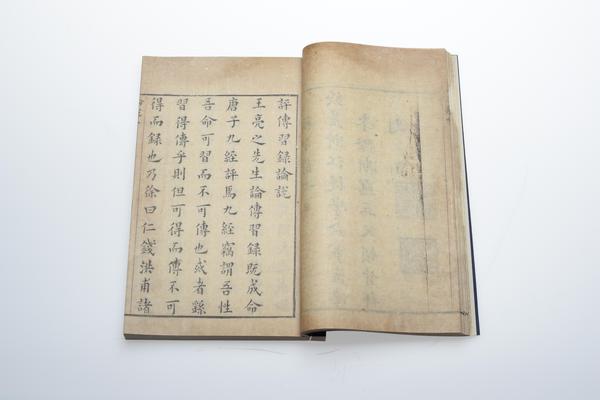 評傳習錄論說
王亮之先生論傳習錄既成命
唐子九經評焉九經竊謂吾性
吾命可習而不可傳也或者繇
習得傳乎則但可得而傳不可
得而錄也乃徐曰仁錢洪甫諸